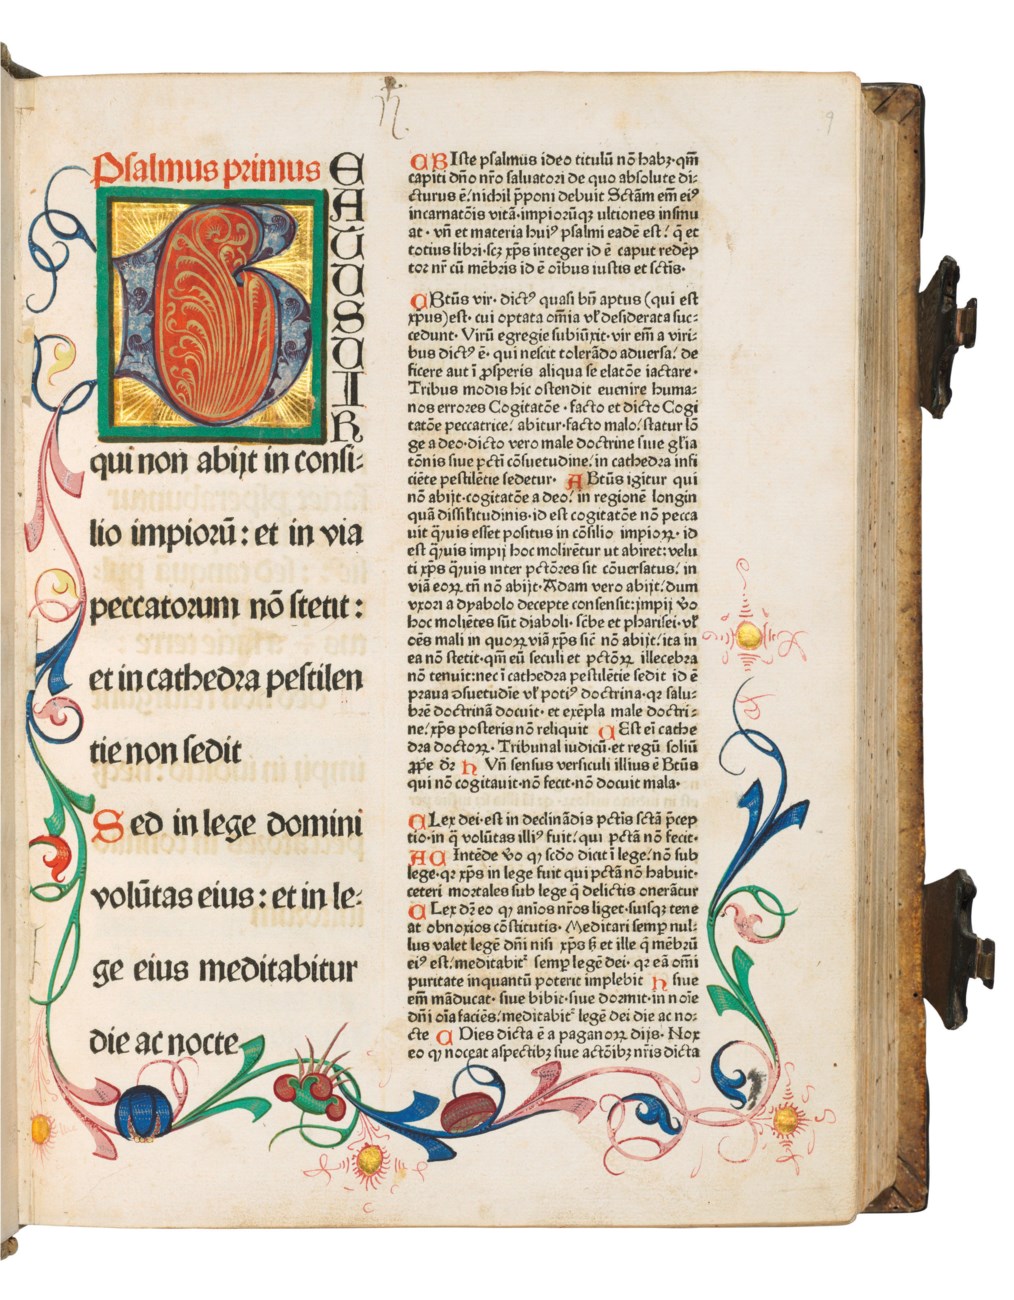 Psalmus primus
BEATUUS UIR
qui non abijt in consi-
lio impiorū: et in via
peccatorum nō stetit:
et in cathedra pestilen
tie non sedit
Sed in lege domini
volūtas eius: et in le-
ge eius meditabitur
die ac nocte
Iste psalmus ideo titulū nō habꝫ·qm̄
capiti dn̄o nr̄o saluatori de quo absolute di-
cturus ē/ nichil p̄poni debuit Sctām em̄ eiꝰ
incarnatōis vitā·impiorūqꝫ ultiones insinu
at· vn̄ et materia huiꝰ psalmi eadē est/ q̄ et
totius libri·scꝫ xp̄s integer id ē caput redēp
tor nr̄ cū mēbris id ē oībus iustis et sctīs·
Btūs vir· dictꝰ quasi bn̄ aptus (qui est
xp̄us) est· cui optata om̄ia vl̄ desiderata suc-
cedunt· Virū egregie subiūxit·vir em̄ a viri-
bus dictꝰ ē· qui nescit tolerādo aduersa/ de
ficere aut ī ꝓsperis aliqua se elatōe iactare·
Tribus modis hic ostendit euenire huma-
nos errores Cogitatōe·facto et dicto Cogi
tatōe peccatrice/ abitur·facto malo/ statur lō
ge a deo·dicto vero male doctrine siue gl̄ia
tōnis siue pctī cōsuetudine/ in cathedra infi
ciēte pestilētie sedetur· A Btūs igitur qui
nō abijt·cogitatōe a deo/ in regionē longin
quā dissil̄itudinis·id est cogitatōe nō pecca
uit q̄uis esset positus in cōsilio impioꝝ· id
est q̄uis impij hoc molirētur ut abiret: velu
ti xp̄s q̄uis inter pctōres sit cōuersatus/ in
viā eoꝝ tn̄ nō abijt·Adam vero abijt/ dum
vxori a dyabolo decepte consensit: impij v̄o
hoc moliētes sūt diaboli· scībe et pharisei·vl̄
oēs mali in quoꝝ viā xp̄s sic̄ nō abijt/ ita in
ea nō stetit·qm̄ eū seculi et pctōꝝ illecebra
nō tenuit: nec ī cathedra pestilētie sedit id ē
praua ↄsuetudīe vl̄ potiꝰ doctrina·qꝛ salu-
brē doctrinā docuit· et exēpla male doctri-
ne/ xp̄s posteris nō reliquit Est ei cathe
dra doctoꝝ· Tribunal iudicū·et regū soliū
ꝓpe dꝛ h Vn̄ sensus versiculi illius ē Btūs
qui nō cogitauit·nō fecit·nō docuit mala·
Lex dei·est in declinādis pctīs sctā p̄cep
tio·in q̄ volūtas illiꝰ fuit/ qui pctā nō fecit·
Intēde v̄o qꝫ scdo dicit ī lege/ nō sub
lege·qꝛ xp̄s in lege fuit qui pctā nō habuit·
ceteri mortales sub lege q̄ delictis onerātur
Lex dꝛ eo qꝫ anīos nr̄os liget·suisqꝫ tene
at obnoxios cōstitutis· Meditari semꝑ nul-
lus valet legē dn̄i nisi xp̄s et ille q̄ mēbrū
eiꝰ est/ meditabit᷑ semꝑ legē dei· qꝛ eā om̄i
puritate inquantū poterit implebit h siue
em̄ māducat· siue bibit·siue dormit·in noīe
dn̄i oīa faciēs/ meditabit᷑ legē dei die ac no-
cte Dies dicta ē a paganoꝝ dijs· Nox
eo qꝫ noceat aspectibꝫ siue actōibꝫ nr̄is dicta